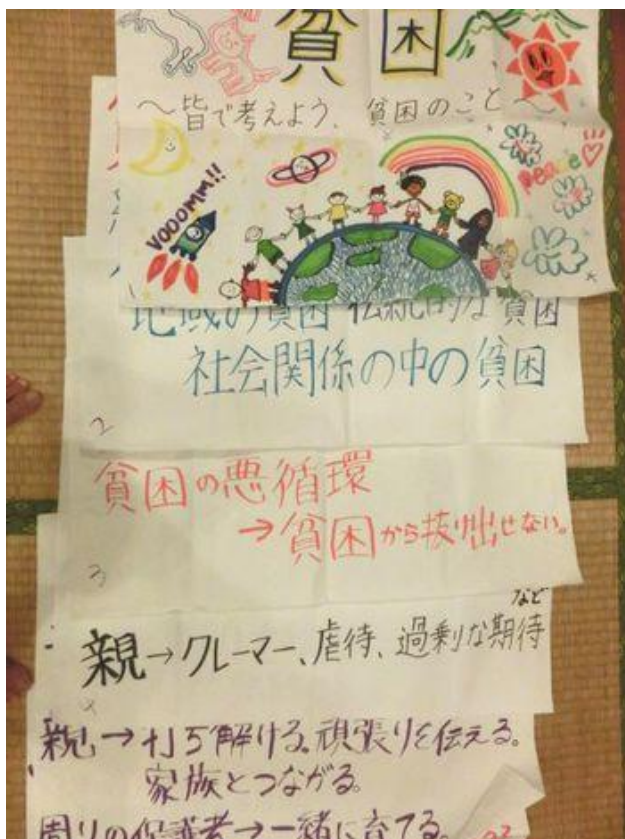 貧困
～皆で考えよう、貧困のこと～
VOOOMM!!
peace
地域の貧困 伝統的な貧困
社会関係の中の貧困
2
貧困の悪循環
→貧困から抜け出せない。
3
など
親→クレーマー、虐待、過剰な期待
親→打ち解ける。頑張りを伝える。
家族とつながる。
周りの保護者→一緒に育てる。